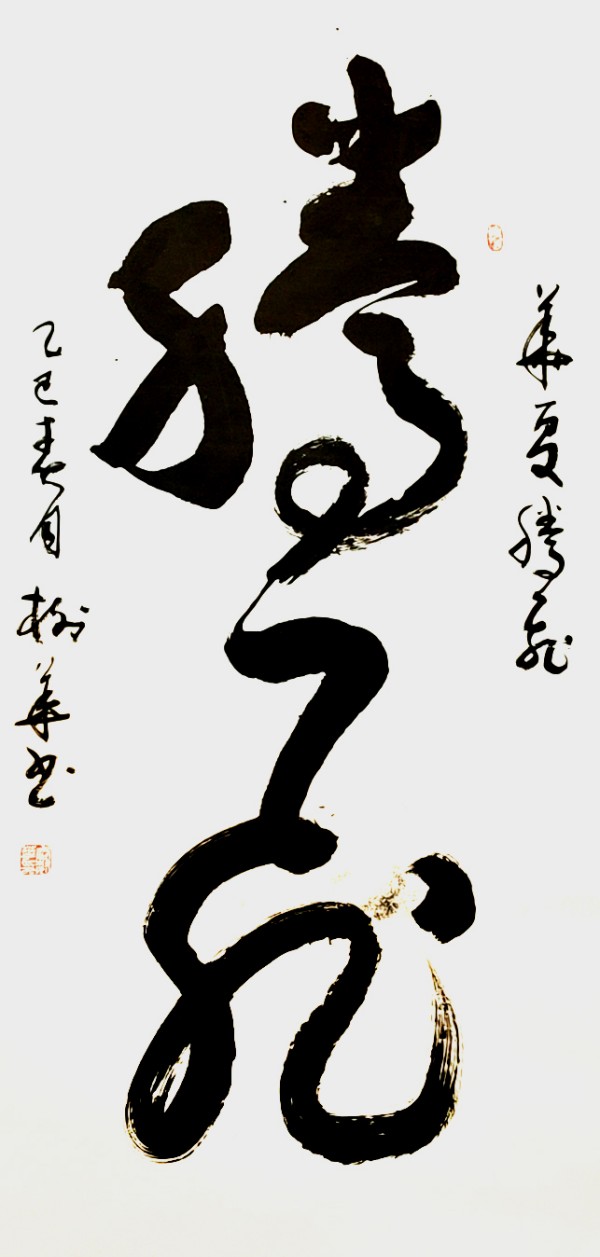 華夏騰飛
騰飛
乙巳春月樹華書